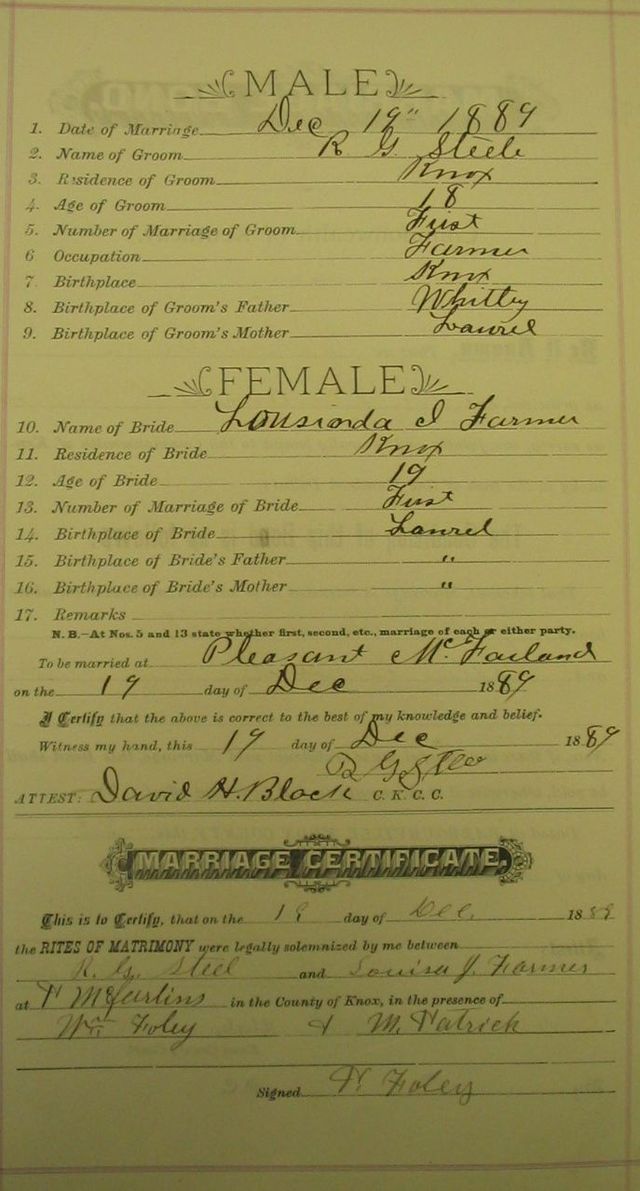 MALE
1. Date of Marriage Dec 19" 1889
2. Name of Groom R G Steele
3. Residence of Groom Knox
4. Age of Groom 18
5. Number of Marriage of Groom First
6 Occupation Farmer
7 Birthplace Knox
8. Birthplace of Groom's Father Whitley
9. Birthplace of Groom's Mother Laurel
FEMALE
10. Name of Bride I Farmer
11. Residence of Bride Knox
12. Age of Bride 19
13. Number of Marriage of Bride First
14. Birthplace of Bride Laurel
15. Birthplace of Bride's Father "
16. Birthplace of Bride's Mother "
17. Remarks
N. B.—At Nos. 5 and 13 state whether first, second, etc., marriage of each or either party.
To be married at Pleasant McFarland
on the 19 day of Dec 1889
I Certify that the above is correct to the best of my knowledge and belief.
Witness my hand, this 19 day of Dec 1889
R G
ATTEST: David H. Black C. K. C. C.
MARRIAGE CERTIFICATE.
This is to Certify, that on the 19 day of Dec. 1889
the RITES OF MATRIMONY were legally solemnized by me between
R. G. Steel and Louisa J. Farmer
at in the County of Knox, in the presence of
Wm Foley & M. Patrick
Signed Foley